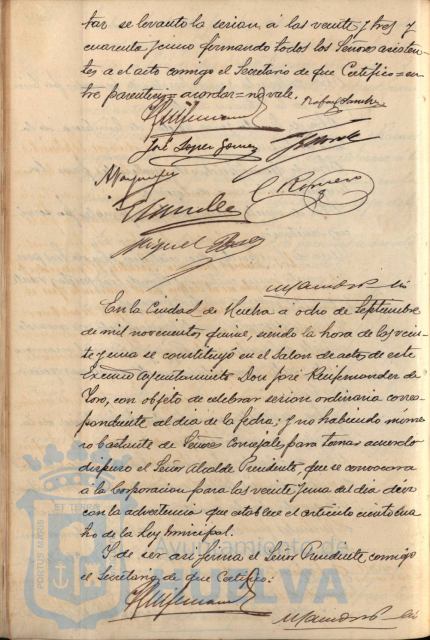 tar se levantó la sesion, á las veinte y tres y
cuarenta y cinco firmando todos los Señores asisten-
tes a el acto conmigo el Secretario de que Certifico = en-
tre parentesis = acordar = no vale.
Rafael Sanchez
José Lopez Gomez
C. Romero
Miguel
En la Ciudad de Huelva á ocho de Septiembre
de mil novecientos quince, siendo la hora de las vein-
te y una se constituyó en el Salon de actos de este
Excmo Ayuntamiento Don José de
Toro, con objeto de celebrar sesion ordinaria corres-
pondiente al dia de la fecha; y no habiendo núme-
ro bastante de Señores Concejales para tomar acuerdo
dispuso el Señor Alcalde Presidente, que se convocara
á la Corporacion para las veinte y una del dia diez
con la advertencia que establece el articulo ciento cua-
tro de la Ley municipal.
Y de ser asi firma el Señor Presidente conmigo
el Secretario de que Certifico:
PORTUS MARIS
Ayuntamiento de
HUELVA